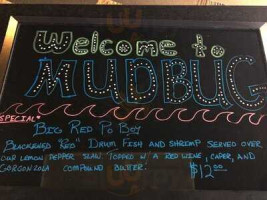 Welcome to
MUDBUG
SPECIAL*
Big Red Po Boy
Blackened "Red" Drum Fish and shrimp served over
our lemon pepper slaw topped w/ a red wine, caper, and
Gorgonzola compound butter.
$12.00